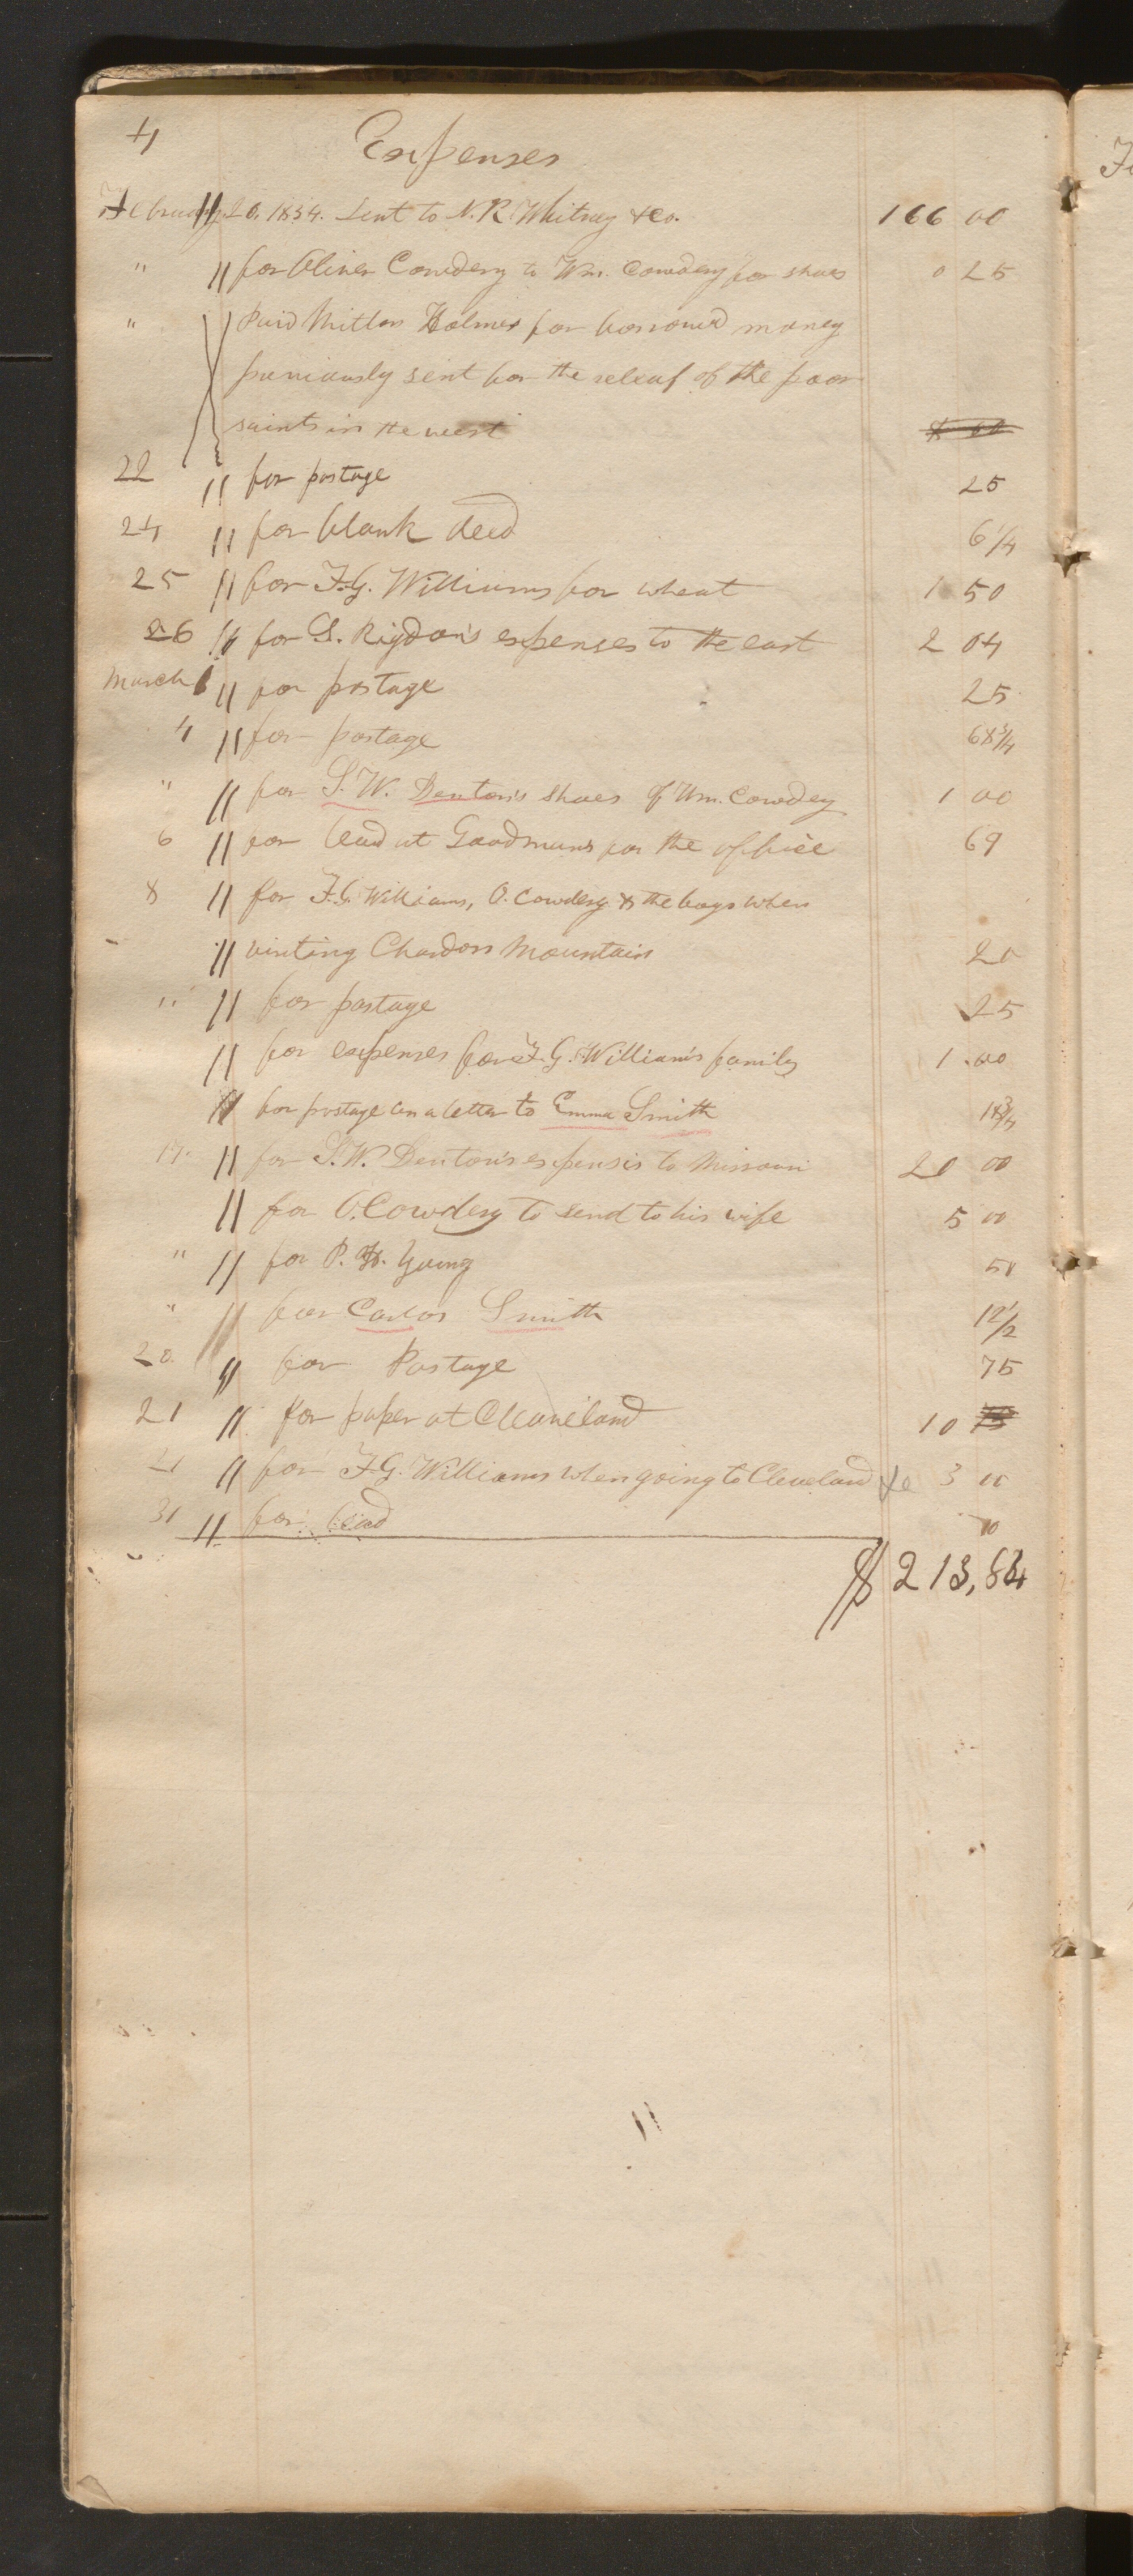 4 Expenses
February 20, 1834. Sent to N. K. Whitney &co. 166 00
" " for Oliver Cowdery to Wm. Cowdery for shoes 0 25
" Paid Milton Holmes for borrowed money
previously sent for the releaf of the poor
saints in the west
22 " for postage 25
24 " for blank deed 6 1/4
25 " for F. G. Williams for wheat 1 50
26 " for S. Rigdon's expenses to the east 2 04
March 1 " for postage 25
4 " for postage 68 3/4
" " for S. W. Denton's shoes of Wm. Cowdery 1 00
6 " for lead at Goodmans for the office 69
8 " for F. G. Williams, O. Cowdery & the boys when
" visiting Chardon Mountain 20
" " for postage 25
" for expenses for F. G. William's family 1.00
" for postage on a letter to Emma Smith 18 3/4
17. " for S. W. Denton's expensis to Missouri 20 00
" for O. Cowdery to send to his wife 5 00
" " for P. H. Young 50
" " for Carlos Smith 12 1/2
20. " for Postage 75
21 " for paper at Cleaveland 10
21 " for F. G. Williams when going to Cleveland &c 3 00
31 " for lead 10
$ 213,84